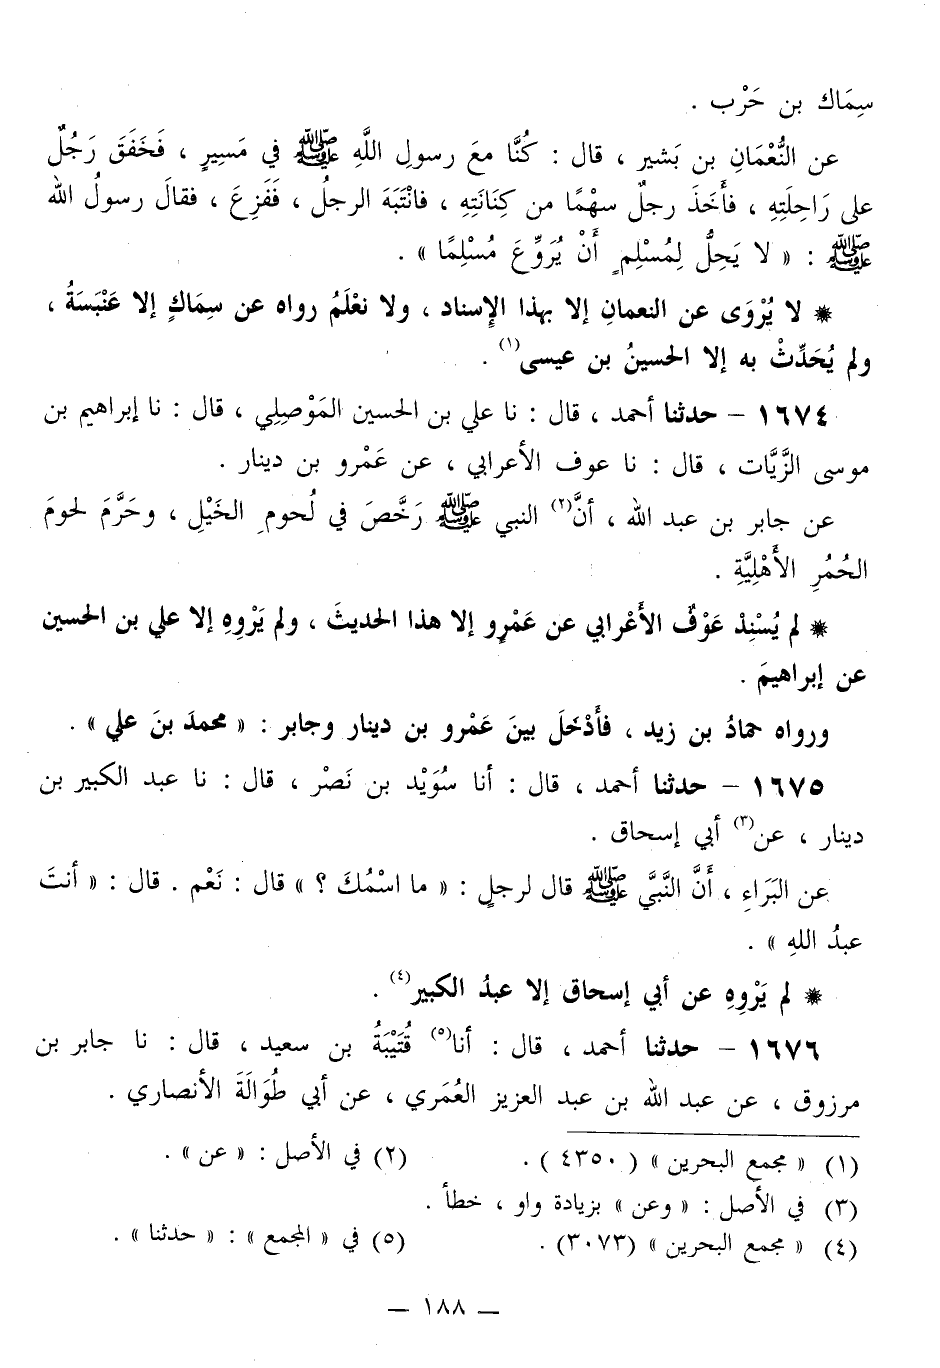 سِمَاك بن حَرْب .
عن النُّعْمَانِ بن بَشير ، قال : كُنَّا معَ رسولِ اللَّهِ ﷺ في مَسِيرٍ ، فَخَفَقَ رَجُلٌ
على رَاحِلَتِهِ ، فأَخَذَ رجلٌ سهْمًا من كِنَانَتِهِ ، فانْتَبَهَ الرجلُ ، فَفَزِعَ ، فقالَ رسولُ الله
ﷺ : « لا يَحِلُّ لِمُسْلِمٍ أَنْ يُرَوِّعَ مُسْلِمًا » .
* لا يُرْوَى عن النعمانِ إلا بهذا الإِسناد ، ولا نعْلَمُ رواه عن سِمَاكٍ إلا عَنْبَسَةُ ،
ولم يُحَدِّثْ به إلا الحسينُ بن عيسى(١) .
١٦٧٤ – حدثنا أحمد ، قال : نا علي بن الحسين المَوْصِلِي ، قال : نا إبراهيم بن
موسى الزَّيَّات ، قال : نا عوف الأعرابي ، عن عَمْرو بن دينار .
عن جابر بن عبد الله ، أنَّ(٢) النبي ﷺ رَخَّصَ في لُحومِ الخَيْلِ ، وحَرَّمَ لحومَ
الحُمُرِ الأَهْلِيَّةِ .
* لم يُسْنِدْ عَوْفٌ الأَعْرابي عن عَمْرٍو إلا هذا الحديثَ ، ولم يَرْوِهِ إلا علي بن الحسين
عن إبراهيمَ .
ورواه حمادُ بن زيد ، فأَدْخَلَ بينَ عَمْرو بن دينار وجابر : « محمدَ بنَ علي » .
١٦٧٥ – حدثنا أحمد ، قال : أنا سُوَيْد بن نَصْر ، قال : نا عبد الكبير بن
دينار ، عن(٣) أبي إسحاق .
عن البَرَاءِ ، أَنَّ النَّبيَّ ﷺ قال لرجلٍ : « ما اسْمُكَ ؟ » قال : نَعْم . قال : « أنتَ
عبدُ اللهِ » .
* لم يَرْوِهِ عن أبي إسحاق إلا عبدُ الكبير(٤) .
١٦٧٦ – حدثنا أحمد ، قال : أنا(٥) قُتَيْبَةُ بن سعيد ، قال : نا جابر بن
مرزوق ، عن عبد الله بن عبد العزيز العُمَري ، عن أبي طُوَالَةَ الأنصاري .
(١) « مجمع البحرين » ( ٤٣٥٠ ) . (٢) في الأصل : « عن » .
(٣) في الأصل : « وعن » بزيادة واو ، خطأ .
(٤) « مجمع البحرين » (٣٠٧٣) . (٥) في « المجمع » : « حدثنا » .
– ١٨٨ –